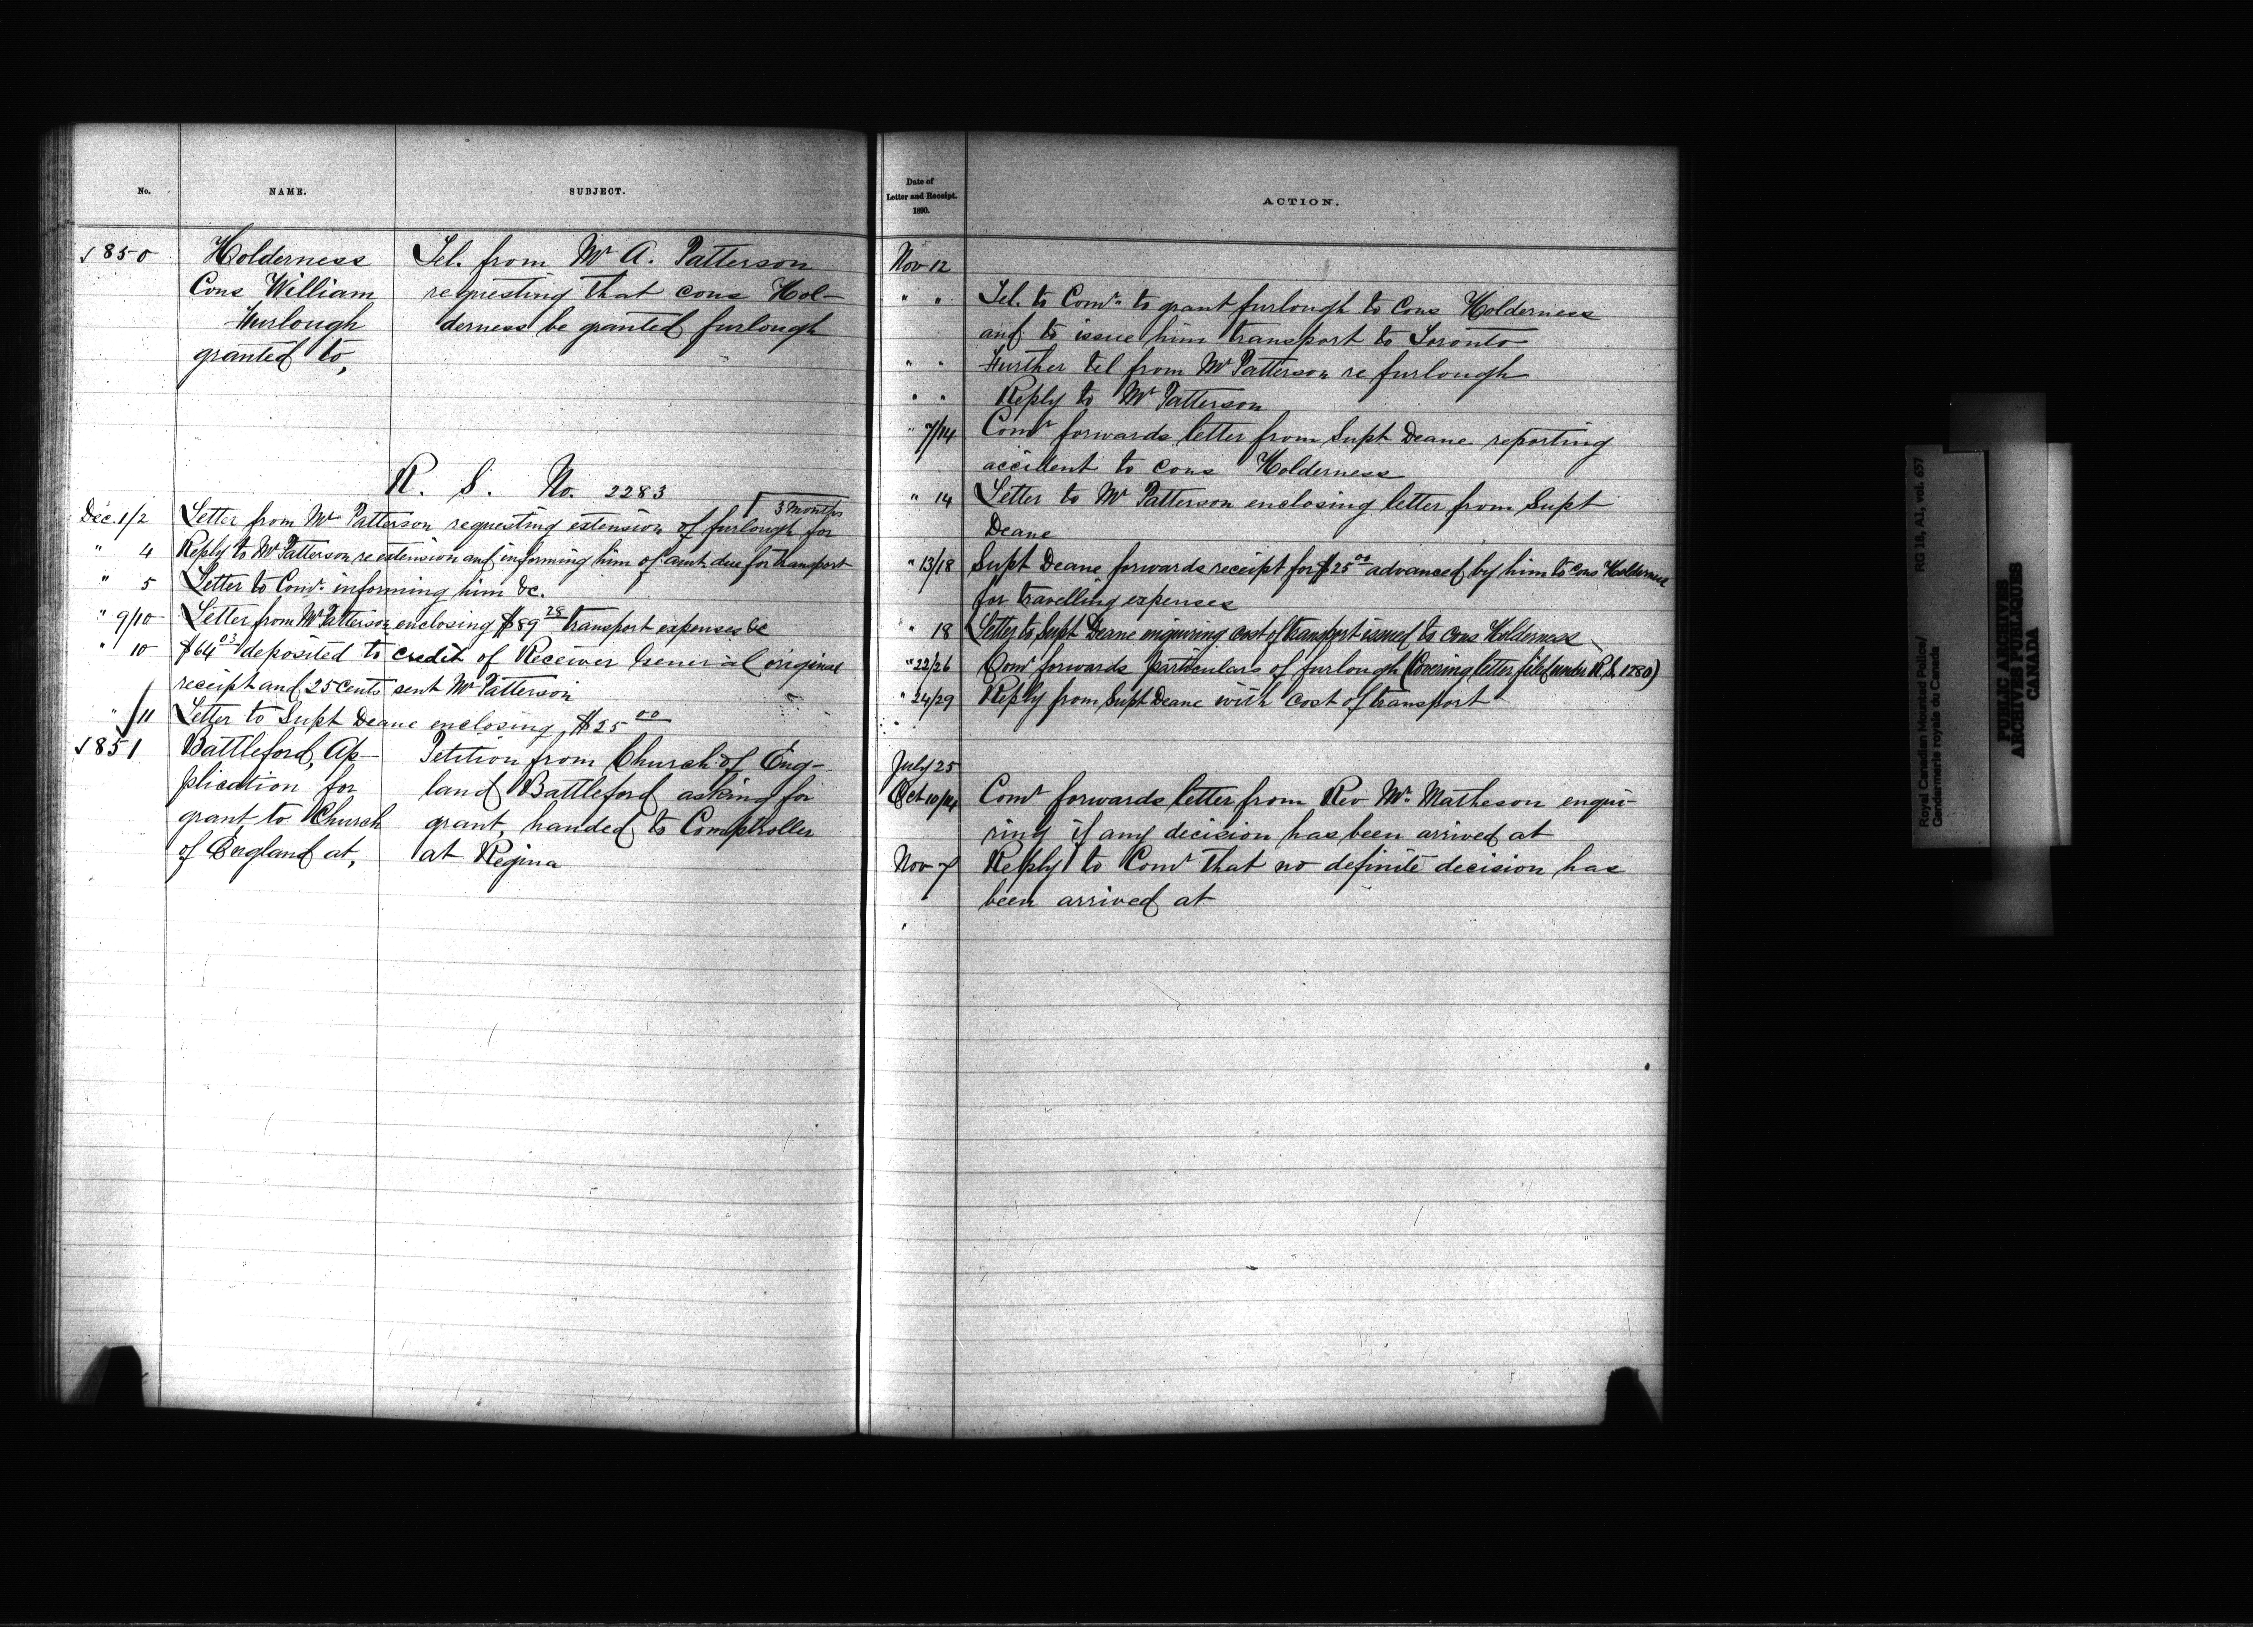 No.
NAME.
SUBJECT.
850
Holderness
Cons William
Furlough
granted to,
Tel. from Mr A. Patterson
requesting that cons Hol-
derness be granted furlough
R. S. No. 2283
3 months
Dec. 1/2 Letter from Mr Patterson requesting extension of furlough for
" 4 Reply to Mr Patterson re extension and informing him of amt due for transport
" 5 Letter to Comr. informing him &c.
" 9/10 Letter from Mr Patterson enclosing $89 28 transport expenses &c
" 10 $64 03 deposited to credit of Receiver General original
receipt and 25 cents sent Mr Patterson
" 11 Letter to Supt Deane enclosing $25 00
851
Battleford, Ap-
plication for
grant to Church
of England at,
Petition from Church of Eng-
land Battleford asking for
grant, handed to Comptroller
at Regina
Date of
Letter and Receipt.
1890.
ACTION.
Nov 12
" " Tel. to Comr. to grant furlough to Cons Holderness
and to issue him transport to Toronto
" " Further tel from Mr Patterson re furlough
" " Reply to Mr Patterson
" 7/14 Comr forwards letter from Supt Deane reporting
accident to cons Holderness
" 14 Letter to Mr Patterson enclosing letter from Supt
Deane
" 13/18 Supt Deane forwards receipt for $25 00 advanced by him to cons Holderness
for travelling expenses
" 18 Letter to Supt Deane enquiring cost of transport issued to Cons Holderness
" 22/26 Comr forwards particulars of furlough (Covering letter filed under R.S. 1280)
" 24/29 Reply from Supt Deane with cost of transport
July 25
Oct 10/14 Comr forwards letter from Rev Mr. Matheson enqui-
ring if any decision has been arrived at
Nov 7 Reply to Comr that no definite decision has
been arrived at
Royal Canadian Mounted Police/ RG 18, A1, vol. 657
Gendarmerie royale du Canada
PUBLIC ARCHIVES
ARCHIVES PUBLIQUES
CANADA